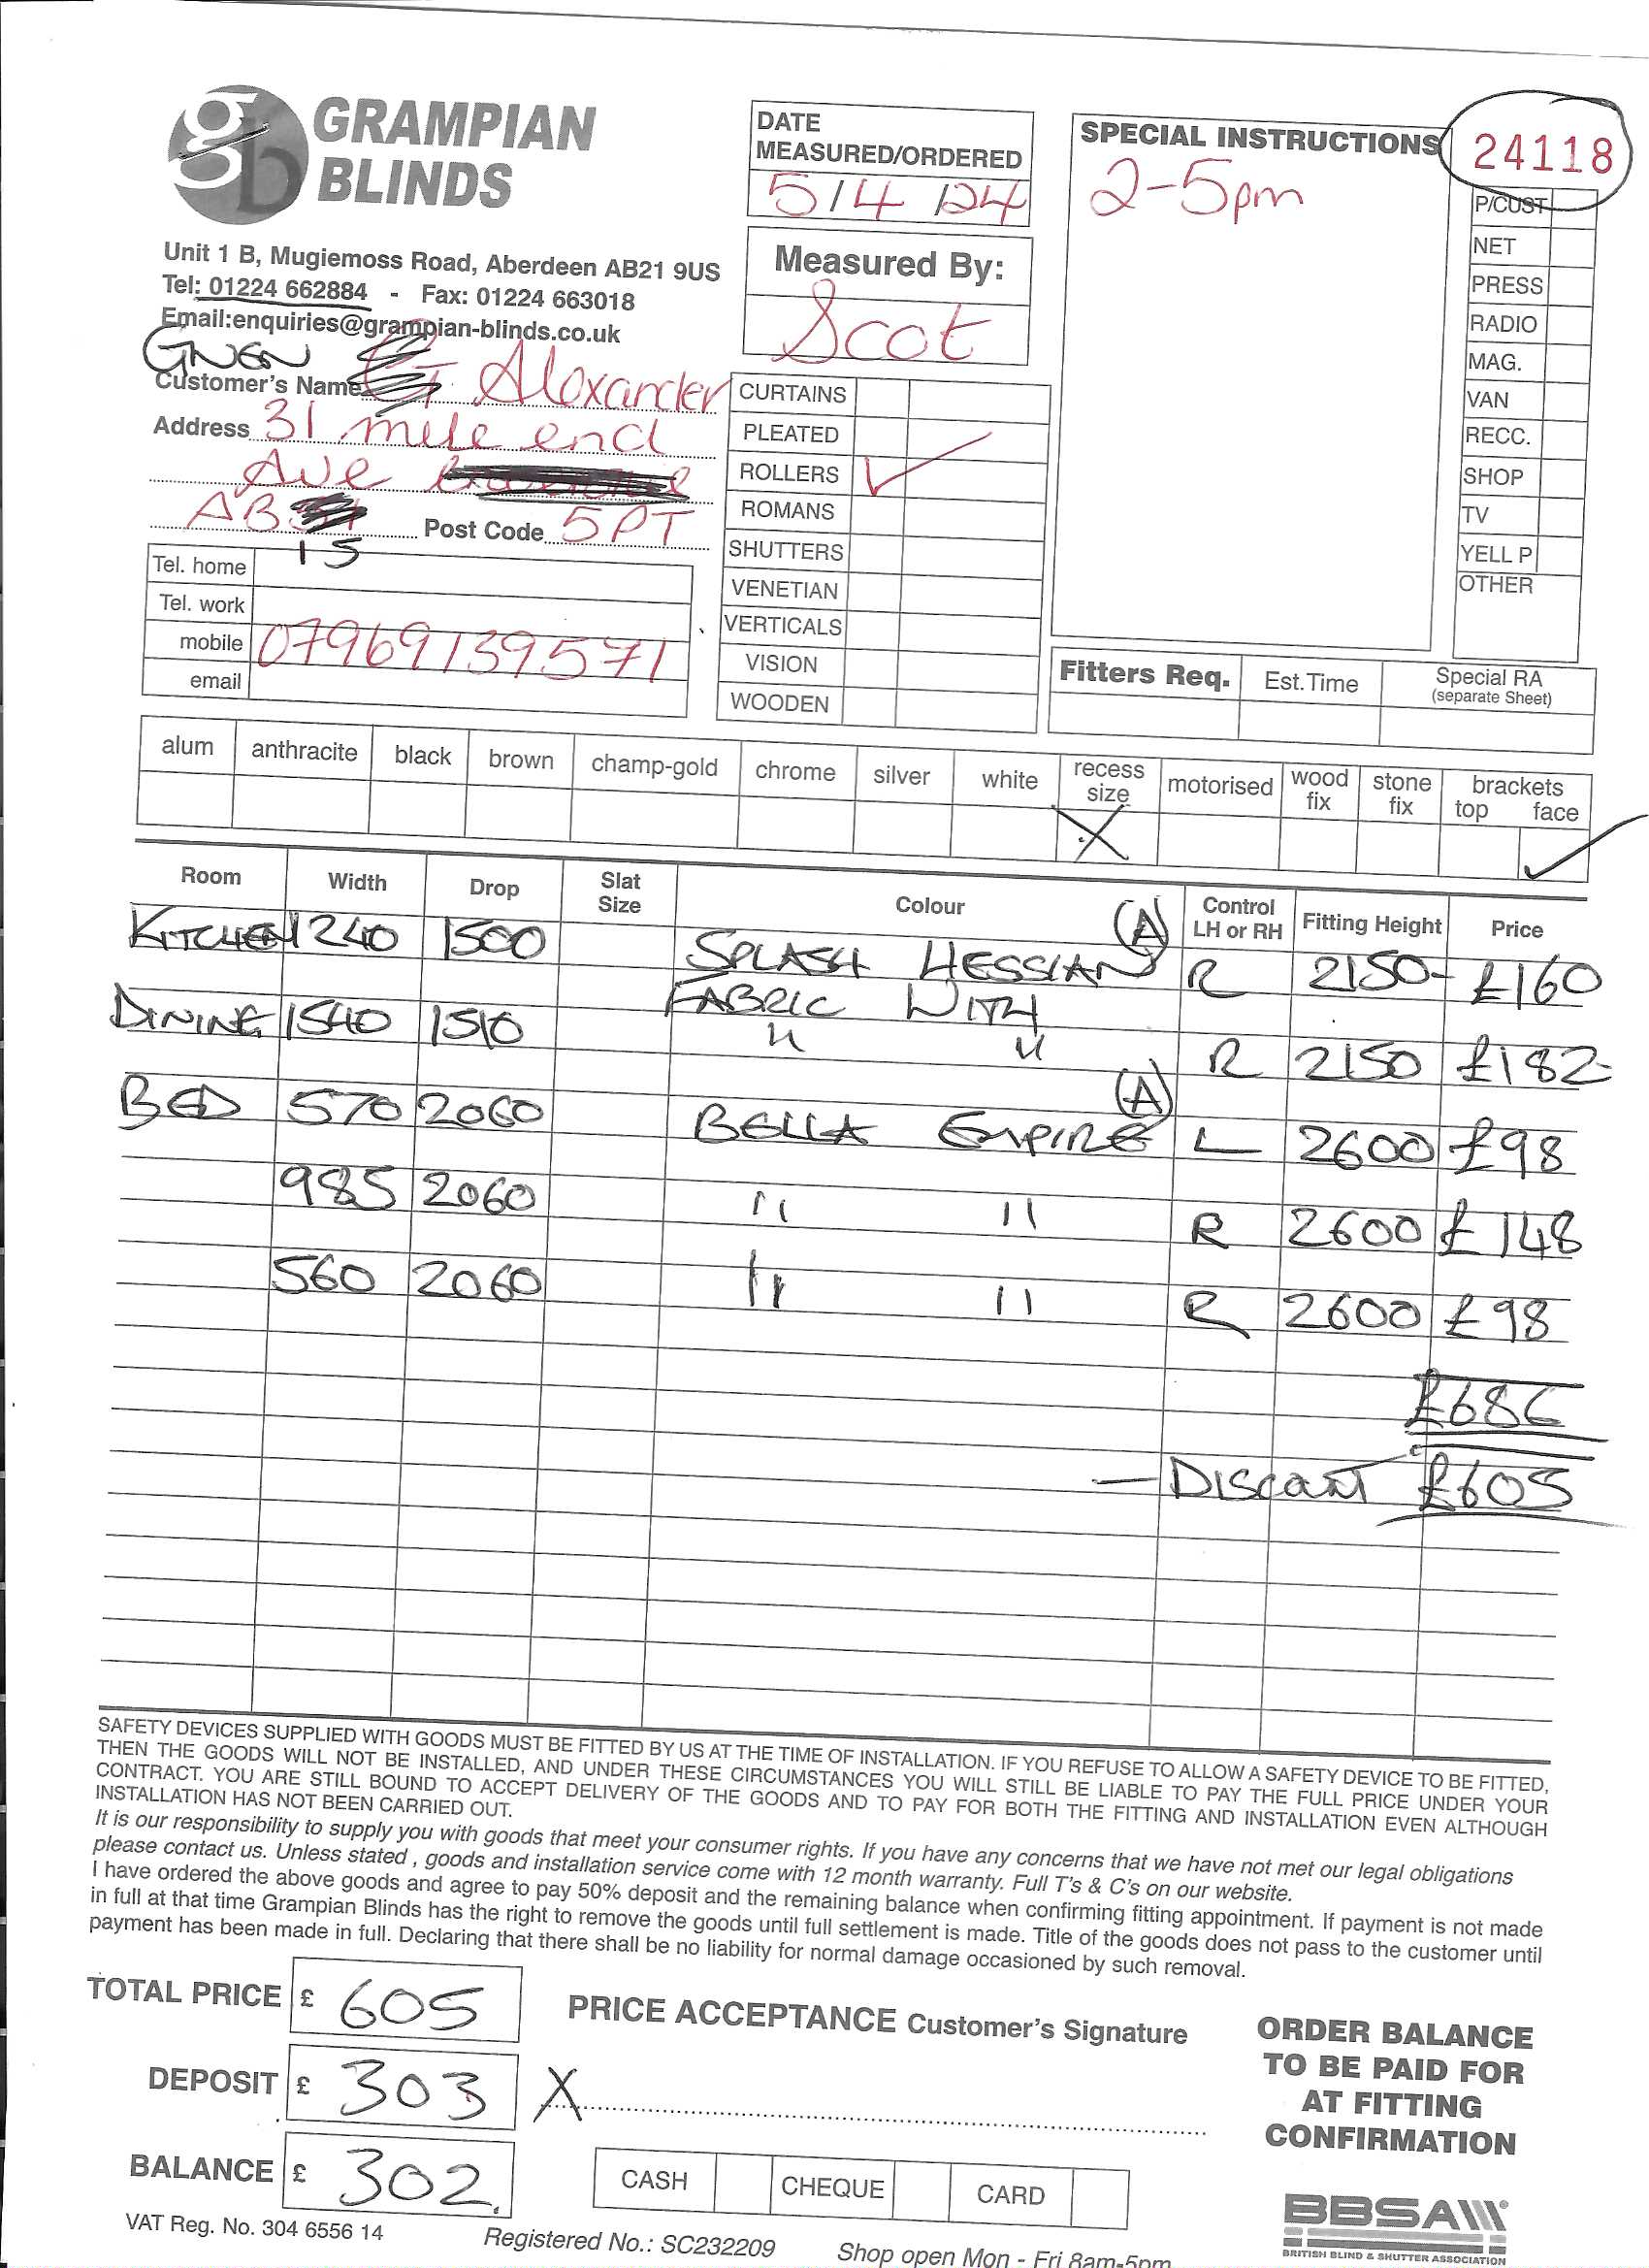 GRAMPIAN
BLINDS
Unit 1 B, Mugiemoss Road, Aberdeen AB21 9US
Tel: 01224 662884 - Fax: 01224 663018
Email:enquiries@grampian-blinds.co.uk
DATE
MEASURED/ORDERED
5/4/24
Measured By:
Scot
SPECIAL INSTRUCTIONS
2-5pm
24118
P/CUST
NET
PRESS
RADIO
MAG.
VAN
RECC.
SHOP
TV
YELL P
OTHER
Customer's Name Alexander
Address 31 mile end
Ave
AB 15 Post Code 5PT
Tel. home
Tel. work
mobile 07969139571
email
CURTAINS
PLEATED
ROLLERS ✓
ROMANS
SHUTTERS
VENETIAN
VERTICALS
VISION
WOODEN
Fitters Req. Est.Time Special RA
(separate Sheet)
alum anthracite black brown champ-gold chrome silver white recess size motorised wood fix stone fix brackets top face
X ✓
Room Width Drop Slat Size Colour Control LH or RH Fitting Height Price
KITCHEN 1240 1500 SPLASH HESSIAN (A) R 2150 £160
FABRIC WITH
DINING 1540 1510 " " R 2150 £182
BED 570 2060 BELLA EMPIRE (A) L 2600 £98
985 2060 " " R 2600 £148
560 2060 " " R 2600 £98
£686
- DISCOUNT £605
SAFETY DEVICES SUPPLIED WITH GOODS MUST BE FITTED BY US AT THE TIME OF INSTALLATION. IF YOU REFUSE TO ALLOW A SAFETY DEVICE TO BE FITTED,
THEN THE GOODS WILL NOT BE INSTALLED, AND UNDER THESE CIRCUMSTANCES YOU WILL STILL BE LIABLE TO PAY THE FULL PRICE UNDER YOUR
CONTRACT. YOU ARE STILL BOUND TO ACCEPT DELIVERY OF THE GOODS AND TO PAY FOR BOTH THE FITTING AND INSTALLATION EVEN ALTHOUGH
INSTALLATION HAS NOT BEEN CARRIED OUT.
It is our responsibility to supply you with goods that meet your consumer rights. If you have any concerns that we have not met our legal obligations
please contact us. Unless stated , goods and installation service come with 12 month warranty. Full T's & C's on our website.
I have ordered the above goods and agree to pay 50% deposit and the remaining balance when confirming fitting appointment. If payment is not made
in full at that time Grampian Blinds has the right to remove the goods until full settlement is made. Title of the goods does not pass to the customer until
payment has been made in full. Declaring that there shall be no liability for normal damage occasioned by such removal.
TOTAL PRICE £ 605
PRICE ACCEPTANCE Customer's Signature
DEPOSIT £ 303
X
BALANCE £ 302
CASH CHEQUE CARD
ORDER BALANCE
TO BE PAID FOR
AT FITTING
CONFIRMATION
BBSA
BRITISH BLIND & SHUTTER ASSOCIATION
VAT Reg. No. 304 6556 14
Registered No.: SC232209
Shop open Mon - Fri 8am-5pm